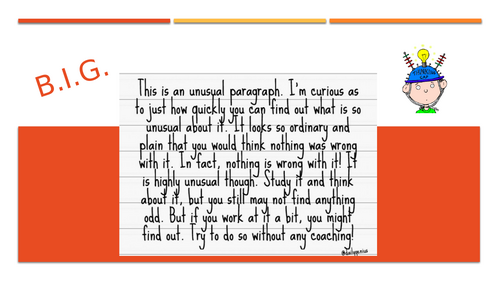 B.I.G.
This is an unusual paragraph. I'm curious as
to just how quickly you can find out what is so
unusual about it. It looks so ordinary and
plain that you would think nothing was wrong
with it. In fact, nothing is wrong with it! It
is highly unusual though. Study it and think
about it, but you still may not find anything
odd. But if you work at it a bit, you might
find out. Try to do so without any coaching!